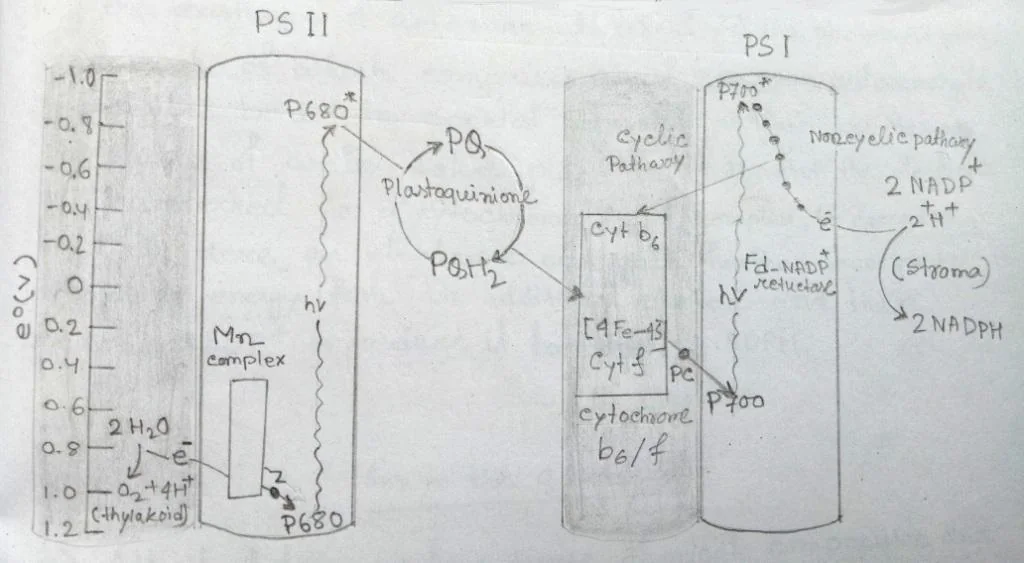 PS II
PS I
e°(v)
-1.0
-0.8
-0.6
-0.4
-0.2
0
0.2
0.4
0.6
0.8
1.0
1.2
2 H₂O
e⁻
O₂ + 4H⁺
(thylakoid)
Mn
complex
Z
P680*
hν
P680
PQ
Plastoquinione
PQH₂
Cyclic
Pathway
Cyt b₆
[4Fe-4S]
Cyt f
Cytochrome
b6/f
PC
P700*
hν
P700
Noncyclic pathway
e⁻
Fd-NADP⁺
reluctase
2 NADP⁺
2⁺H⁺
(Stroma)
2 NADPH